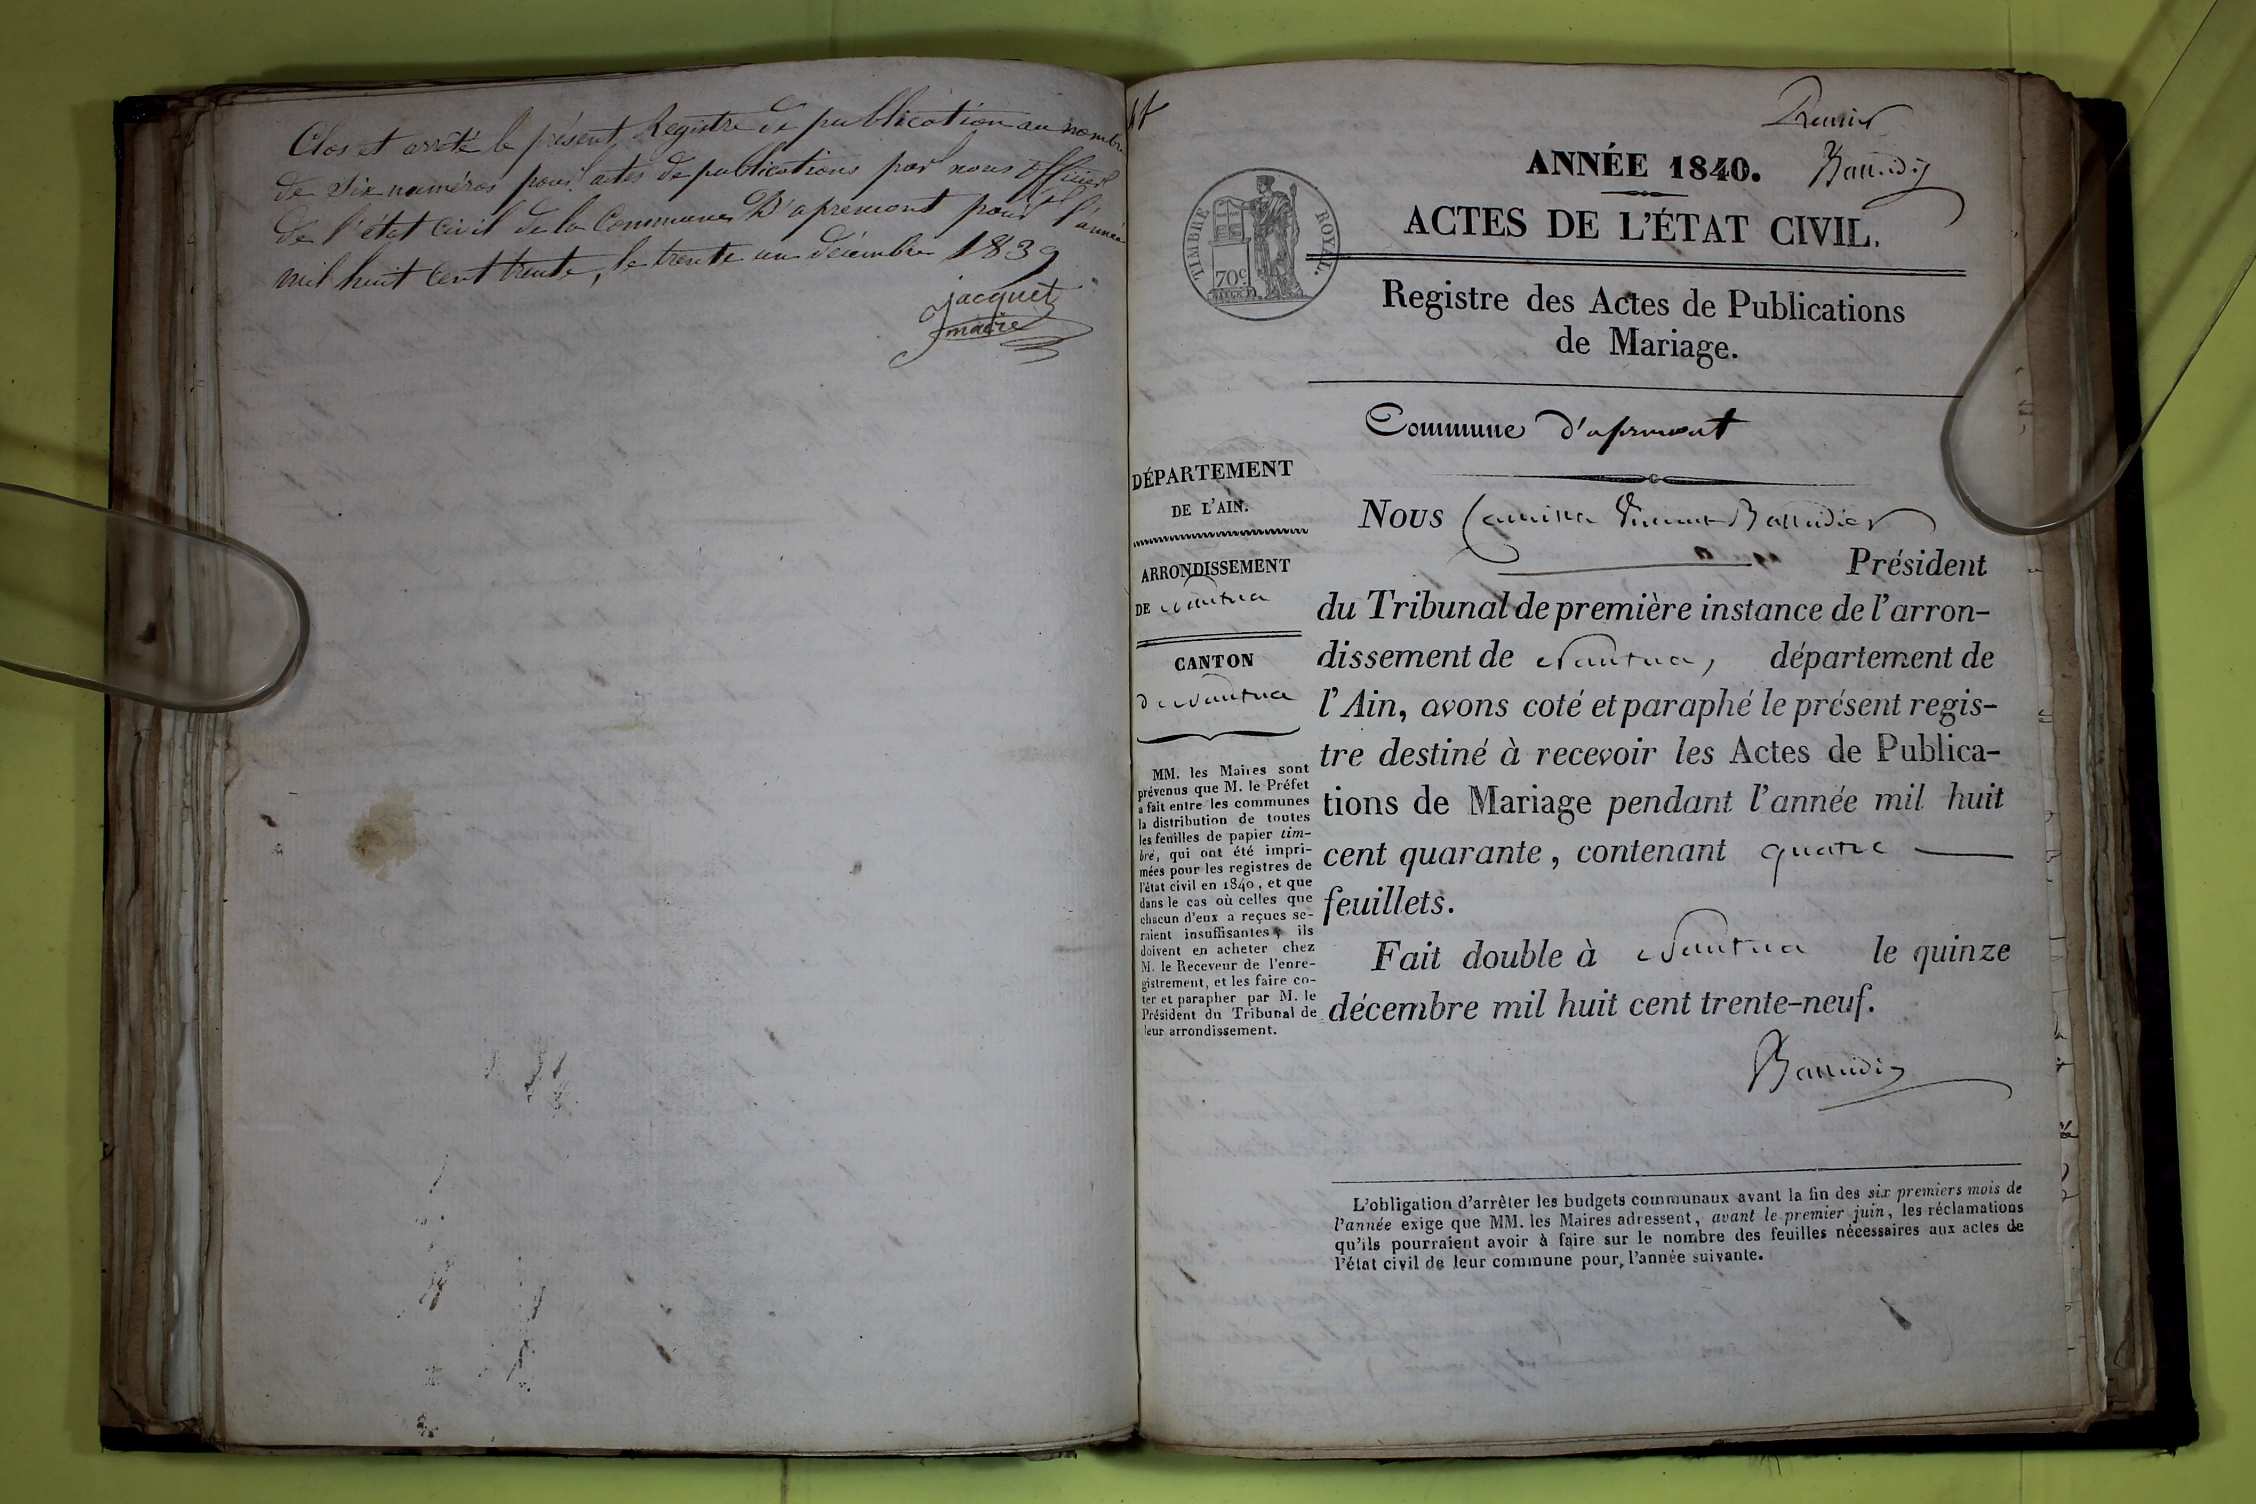 Clos et arrêté le présent Registre de publication au nombre
de Six numéros pour actes de publications par nous officier
de l'état civil de la Commune D'apremont pour l'année
mil huit cent trente, le trente un décembre 1839
jacquet
maire
Premier
ANNÉE 1840.
TIMBRE ROYAL.
70c
ACTES DE L'ÉTAT CIVIL.
Registre des Actes de Publications
de Mariage.
Commune d'apremont
DÉPARTEMENT
DE L'AIN.
ARRONDISSEMENT
DE Nantua
CANTON
de Nantua
MM. les Maires sont
prévenus que M. le Préfet
a fait entre les communes
la distribution de toutes
les feuilles de papier tim-
bré, qui ont été impri-
mées pour les registres de
l'état civil en 1840, et que
dans le cas où celles que
chacun d'eux a reçues se-
raient insuffisantes, ils
doivent en acheter chez
M. le Receveur de l'enre-
gistrement, et les faire co-
ter et parapher par M. le
Président du Tribunal de
leur arrondissement.
Nous
Président
du Tribunal de première instance de l'arron-
dissement de Nantua, département de
l'Ain, avons coté et paraphé le présent regis-
tre destiné à recevoir les Actes de Publica-
tions de Mariage pendant l'année mil huit
cent quarante, contenant quatre
feuillets.
Fait double à Nantua le quinze
décembre mil huit cent trente-neuf.
L'obligation d'arrêter les budgets communaux avant la fin des six premiers mois de
l'année exige que MM. les Maires adressent, avant le premier juin, les réclamations
qu'ils pourraient avoir à faire sur le nombre des feuilles nécessaires aux actes de
l'état civil de leur commune pour l'année suivante.